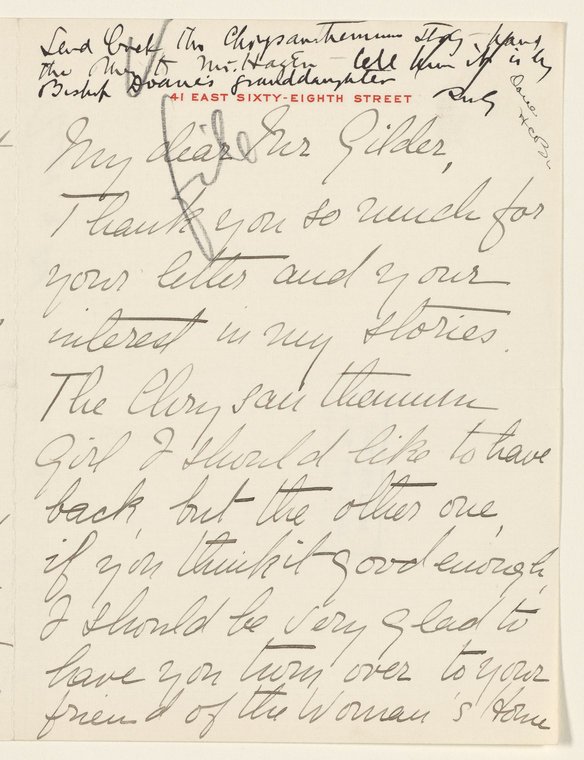 Send back The Chrysanthemum Story - hand
the other to Mr. Hazen - tell him it is by
Bishop Doane's granddaughter
41 EAST SIXTY-EIGHTH STREET
File
My dear Mr Gilder,
Thank you so much for
your letter and your
interest in my stories.
The Chrysanthemum
Girl I should like to have
back, but the other one,
if you think it good enough,
I should be very glad to
have you turn over to your
friend of the Woman's Home